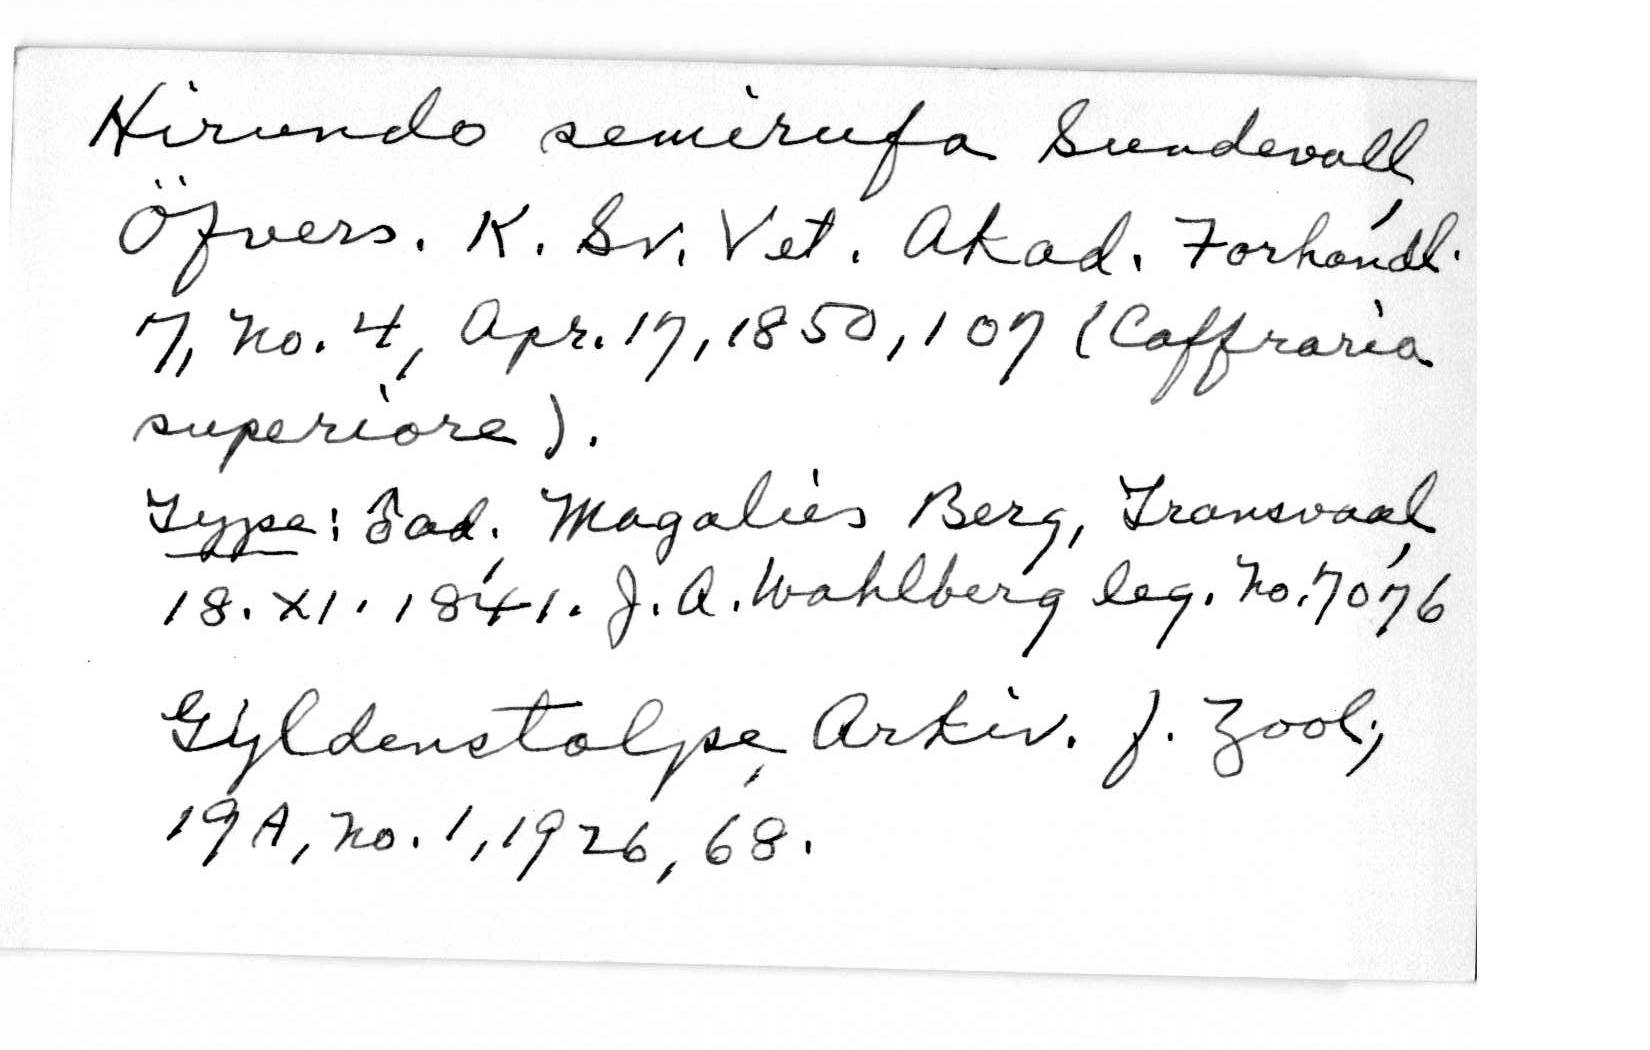 Hirundo semirufa Sundevall,
Öfvers. K. Sv. Vet. Akad. Forhandl.
7, No. 4, Apr. 17, 1850, 107 (Caffraria
superiore).
Type: ♂ ad. Magalies Berg, Transvaal,
18. XI. 1841. J. A. Wahlberg leg. No. 7076
Gyldenstolpe, Arkiv. f. Zool.,
19A, No. 1, 1926, 68.